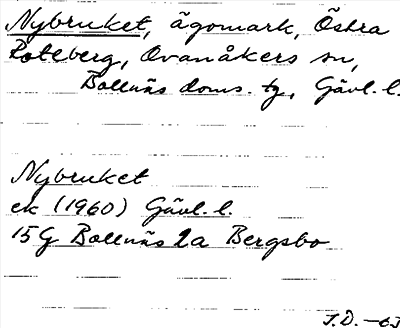 Nybruket, ägomark, Östra
Roteberg, Ovanåkers sn,
Bollnäs doms. tg, Gävl. l.
Nybruket
ek (1960) Gävl. l.
15G Bollnäs 2a Bergsbo
T.D. -63